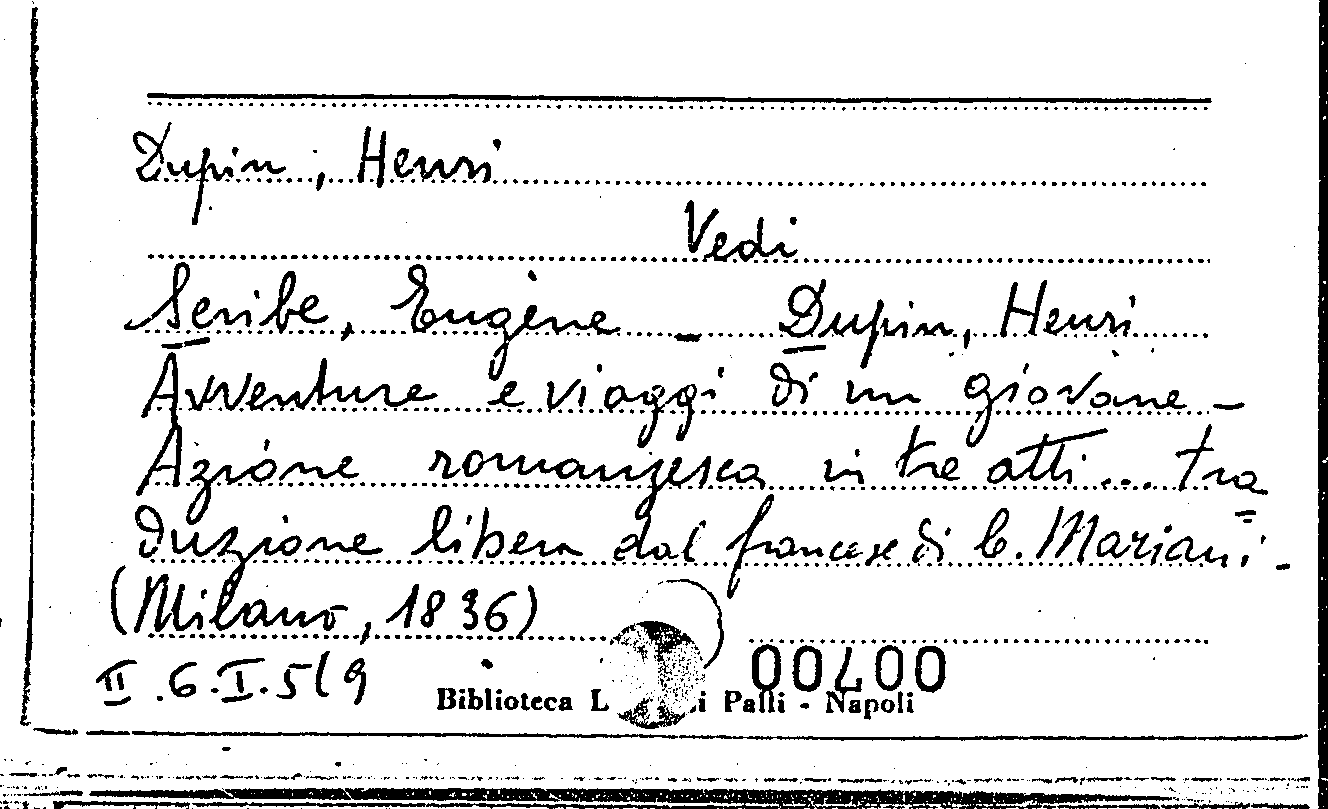 Dupin, Henri
Vedi
Scribe, Eugène - Dupin, Henri
Avventure e viaggi di un giovane -
Azione romanzesca in tre atti... tra
duzione libera dal francese di C. Mariani -
(Milano, 1836)
II.6.I.5(9
00700
Biblioteca L i Palli - Napoli